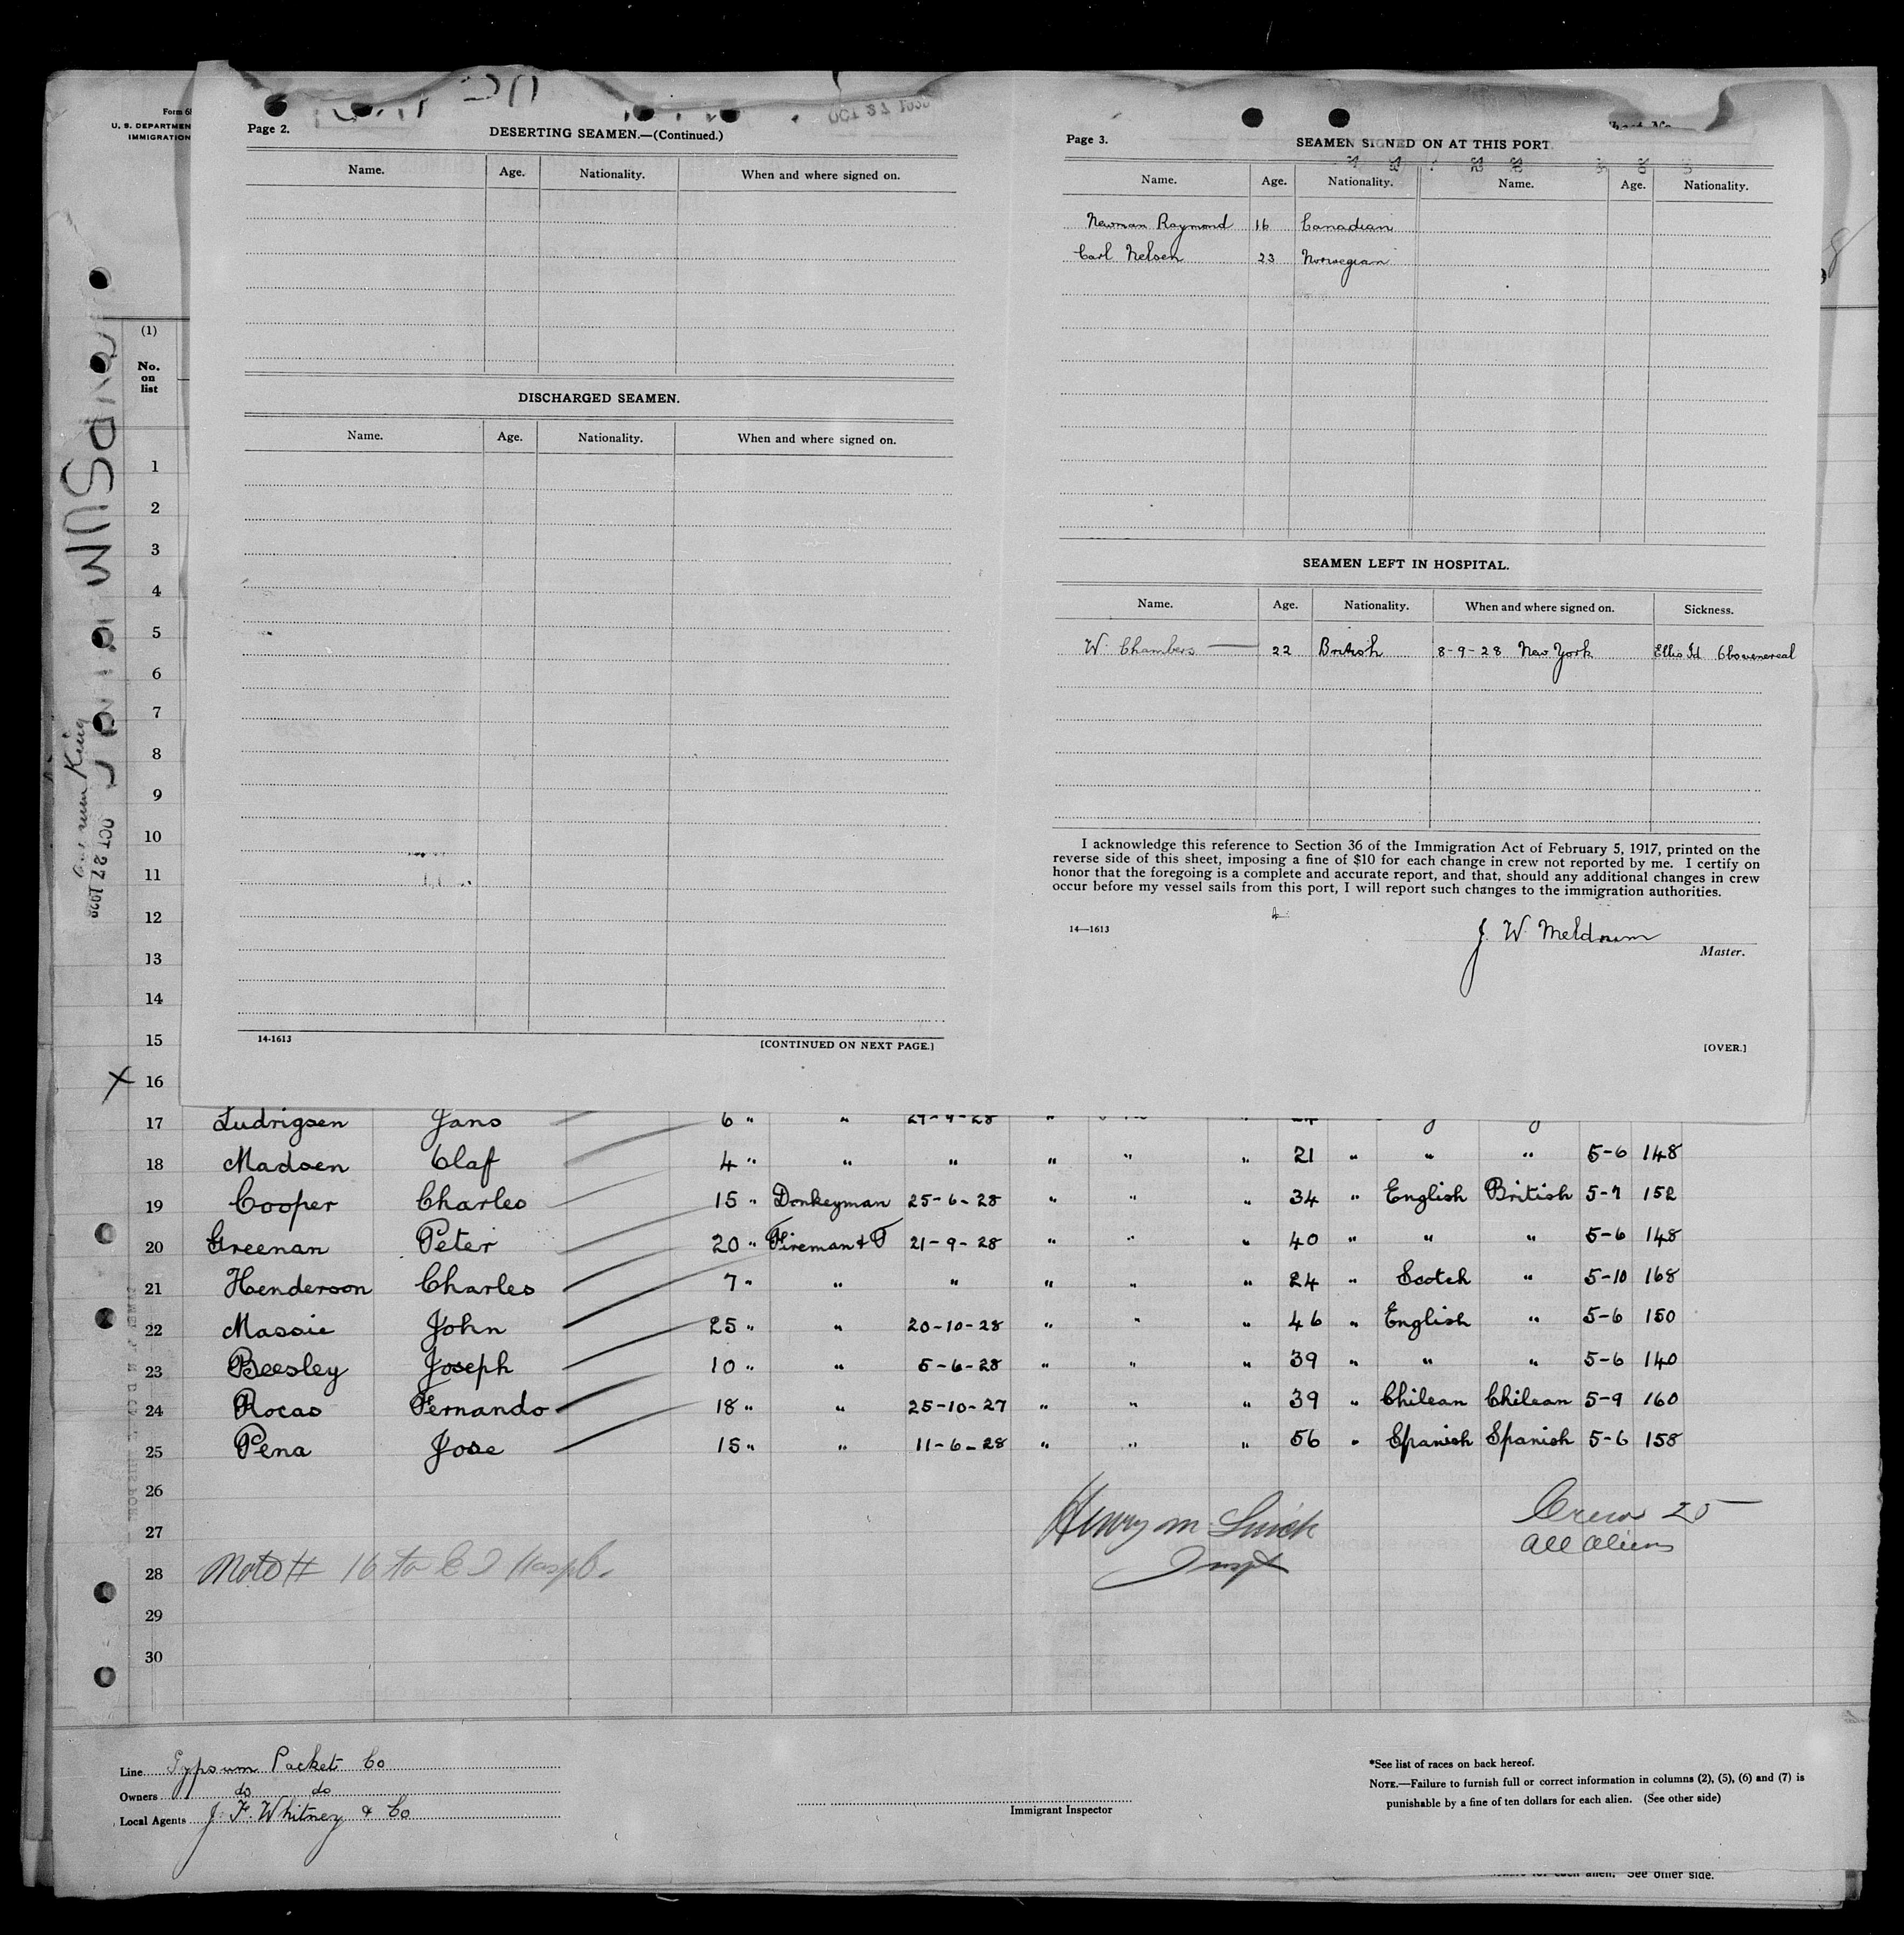 Page 2.
DESERTING SEAMEN.—(Continued.)
Name. Age. Nationality. When and where signed on.
DISCHARGED SEAMEN.
Name. Age. Nationality. When and where signed on.
14-1613
[CONTINUED ON NEXT PAGE.]
Page 3.
SEAMEN SIGNED ON AT THIS PORT.
Name. Age. Nationality. Name. Age. Nationality.
Newman Raymond 16 Canadian
Carl Nelsen 23 Norwegian
SEAMEN LEFT IN HOSPITAL.
Name. Age. Nationality. When and where signed on. Sickness.
W. Chambers 22 British 8-9-28 New York Ellis Id
I acknowledge this reference to Section 36 of the Immigration Act of February 5, 1917, printed on the
reverse side of this sheet, imposing a fine of $10 for each change in crew not reported by me. I certify on
honor that the foregoing is a complete and accurate report, and that, should any additional changes in crew
occur before my vessel sails from this port, I will report such changes to the immigration authorities.
14—1613
J. W. Meldrum
Master.
[OVER.]
U. S. DEPARTMEN
IMMIGRATION
(1)
No.
on
list
Gypsum King
OCT 27 1928
1
2
3
4
5
6
7
8
9
10
11
12
13
14
15
X 16
17 Ludrigsen Jans 6 " "
18 Madsen Olaf 4 " " " " " " 21 " " " 5-6 148
19 Cooper Charles 15 " Donkeyman 25-6-28 " " " 34 " English British 5-7 152
20 Greenan Peter 20 " Fireman & T 21-9-28 " " " 40 " " " 5-6 148
21 Henderson Charles 7 " " " " " " 24 " Scotch " 5-10 168
22 Massie John 25 " " 20-10-28 " " " 46 " English " 5-6 150
23 Beesley Joseph 10 " " 5-6-28 " " " 39 " " " 5-6 140
24 Rocas Fernando 18 " " 25-10-27 " " " 39 " Chilean Chilean 5-9 160
25 Pena Jose 15 " " 11-6-28 " " " 56 " Spanish Spanish 5-6 158
26
27
28
29
30
Crew 25
All Aliens
Henry M.
Inspt
# 16 to E I Hospl.
Line Gypsum Packet Co
Owners do do
Local Agents J. F. Whitney & Co
Immigrant Inspector
*See list of races on back hereof.
NOTE.—Failure to furnish full or correct information in columns (2), (5), (6) and (7) is
punishable by a fine of ten dollars for each alien. (See other side)
See other side.